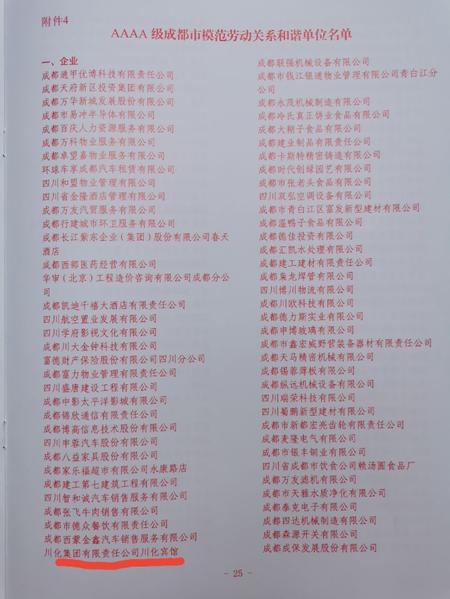 附件4
AAAA 级成都市模范劳动关系和谐单位名单
一、企业
成都遒甲优博科技有限责任公司
成都天府新区投资集团有限公司
成都万华新城发展股份有限公司
成都市易冲半导体有限公司
成都百庆人力资源服务有限公司
成都万科物业服务有限公司
成都卓望嘉物业服务有限公司
环球车享成都汽车租赁有限公司
四川和盟物业管理有限公司
四川省金隆酒店管理有限公司
成都万友汽贸服务有限公司
成都行建城市环卫服务有限公司
成都长江紫东企业(集团)股份有限公司春天
酒店
成都西部医药经营有限公司
华审(北京)工程造价咨询有限公司成都分公
司
成都凯迪千禧大酒店有限责任公司
四川航空置业发展有限公司
四川学府影视文化有限公司
成都川大金钟科技有限公司
富德财产保险股份有限公司四川分公司
成都富力物业管理有限责任公司
四川盛唐建设工程有限公司
成都中影太平洋影城有限公司
成都锦欣通信有限责任公司
成都博高信息技术股份有限公司
四川申蓉汽车股份有限公司
成都八益家具股份有限公司
成都家乐福超市有限公司永康路店
成都建工第七建筑工程有限公司
四川智和诚汽车销售服务有限公司
成都张飞牛肉销售有限公司
成都市德众餐饮有限责任公司
成都西蒙金鑫汽车销售服务有限公司
川化集团有限责任公司川化宾馆
成都联强机械设备有限公司
成都市钱江银通物业管理有限公司青白江分
公司
成都永茂机械制造有限公司
成都冷氏真正饼业食品有限公司
成都大糊子食品有限公司
成都建业制品有限责任公司
成都卡斯特精密铸造有限公司
成都时代创绿园艺有限公司
成都市张老头食品有限公司
四川双弘空调设备有限公司
成都市青白江区富发新型建材有限公司
成都温鸭子食品有限公司
成都德佳投资有限公司
成都汇凯水处理有限公司
成都建工建材有限责任公司
成都集龙焊管有限公司
四川博川物流有限公司
四川欧科技有限公司
成都德力斯实业有限公司
成都申博玻璃有限公司
成都市鑫宏威野营装备器材有限责任公司
成都天马精密机械有限公司
成都锡蓉薄板有限公司
成都纵远机械设备有限公司
四川瑞荣科技有限公司
四川蜀鹏新型建材有限公司
成都市新都宏亮齿轮有限责任公司
成都麦隆电气有限公司
成都市银丰铜业有限公司
四川省成都市饮食公司赖汤圆食品厂
成都万友滤机有限公司
成都市天雅水质净化有限公司
成都泰克电子有限公司
成都四达机械制造公司
成都森源开关有限公司
成都成保发展股份有限公司
- 25 -